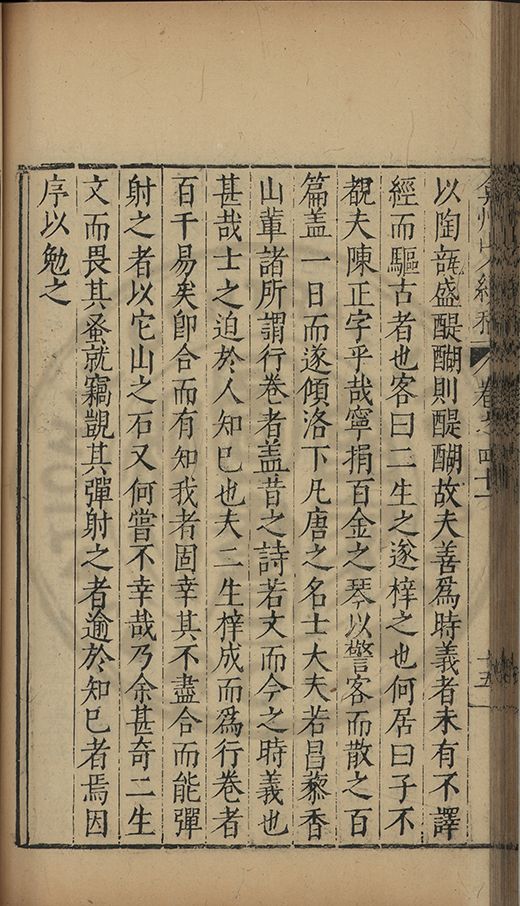 以陶㼽盛醍醐則醍醐故夫善爲時義者未有不譯
經而驅古者也客曰二生之遂梓之也何居曰子不
覩夫陳正字乎哉寧捐百金之琴以警客而散之百
篇盖一日而遂傾洛下凡唐之名士大夫若昌藜香
山輩諸所謂行卷者盖昔之詩若文而今之時義也
甚哉士之迫於人知巳也夫二生梓成而爲行卷者
百千易矣卽合而有知我者固幸其不盡合而能彈
射之者以它山之石又何嘗不幸哉乃余甚奇二生
文而畏其蚤就竊覬其彈射之者逾於知巳者焉因
序以勉之